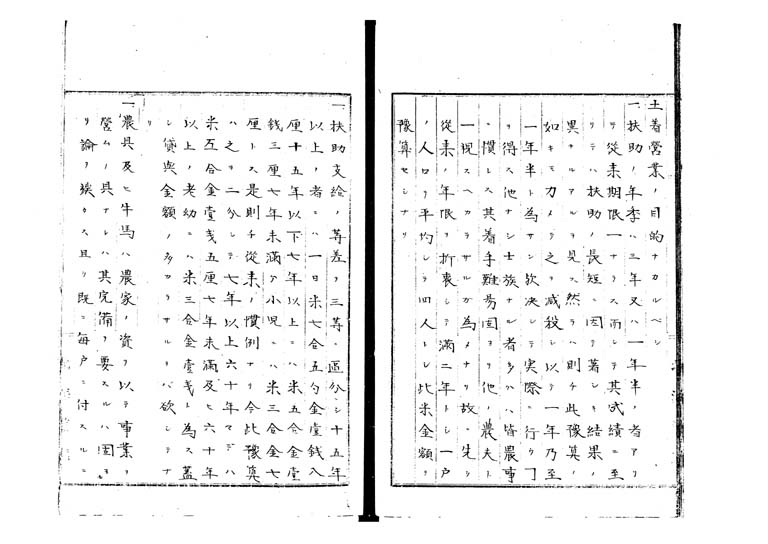 土着營業ノ目的ナカルベシ
一扶助ノ年季ハ三年又ハ一年半ノ者アリ
テ從来期限一ナラス而シテ其成績ニ至
リテハ扶助ノ長短ニ因テ著シキ結果ノ
異ナルアルヲ見ス然ラハ則チ此豫算ノ
如キモ力メテ之ヲ減殺シ以テ一年乃至
一年半ト為サン欤決シテ実際ニ行ク
ヲ得ス他ナシ士族ナル者多クハ皆農事
ニ慣レス其着手難易固ヨリ他ノ農夫ト
一視スヘカラサルカ為メナリ故ニ先ツ
從来ノ年限ヲ折衷シテ満二年トシ一戸
ノ人口ヲ平均シテ四人トシ此米金額ヲ
豫算セシナリ
一扶助支給ノ等差ヲ三等ニ區分シ十五年
以上ノ者ニハ一日米七合五勺金壹銭八
厘十五年以下七年以上ニハ米五合金壹
銭三厘七年未満ノ小児ニハ米三合金七
厘トス是則チ從来ノ慣例ナリ今此豫算
ハ之ヲ二分シテ七年以上六十年マデハ
米五合金壹銭五厘七年未満及ヒ六十年
以上ノ老幼ニハ米三合金壹銭ト為ス蓋
シ貸與金額ノ多カラサルヲ欲シテナ
リ
一農具及ヒ牛馬ハ農家ノ資ヲ以テ事業ヲ
營ムノ具ナレハ其完備ヲ要スルハ固ヨ
リ論ヲ俟タス且ツ既ニ毎戸ニ付スルニ